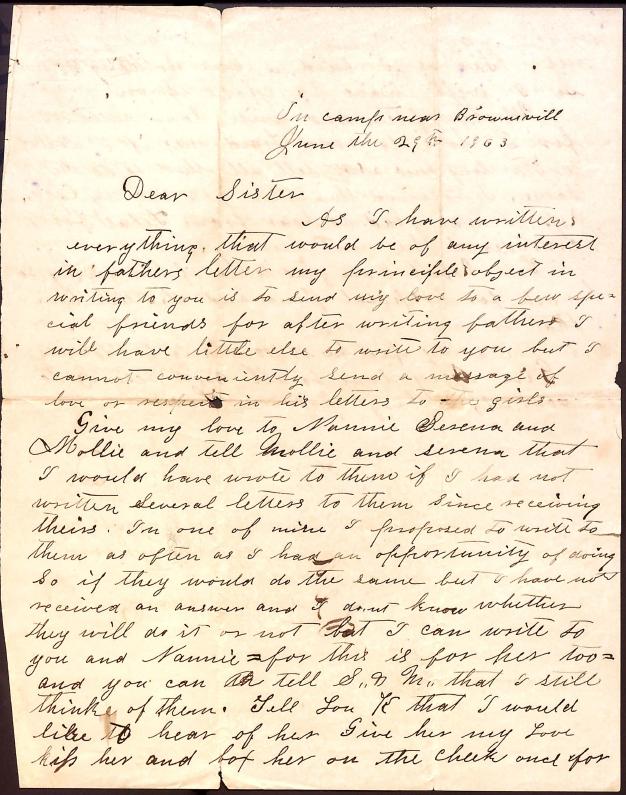 In camp near Brownsvill
June the 29th 1863
Dear Sister
As I have written
everything that would be of any interest
in fathers letter my principle object in
writing to you is to send my love to a few spe=
cial friends for after writing fathers I
will have little else to write to you but I
cannot conveniently send a message of
love or respect in his letters to the girls
Give my love to Nannie Serena and
Mollie and tell Mollie and serena that
I would have wrote to them if I had not
written several letters to them since receiving
theirs. In one of mine I proposed to write to
them as often as I had an opportunity of doing
so if they would do the same but I have not
received an answer and I dont know whether
they will do it or not but I can write to
you and Nannie = for this is for her too =
and you can tell S,, & M,, that I still
thinke of them. Tell Lou K that I would
like to hear of her Give her my Love
kiss her and box her on the cheek once for